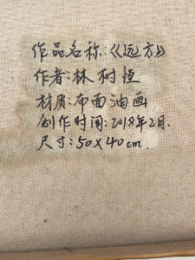 作品名称:《远方》
作者:林树恒
材质:布面油画
创作时间:2018年2月.
尺寸:50×40cm.